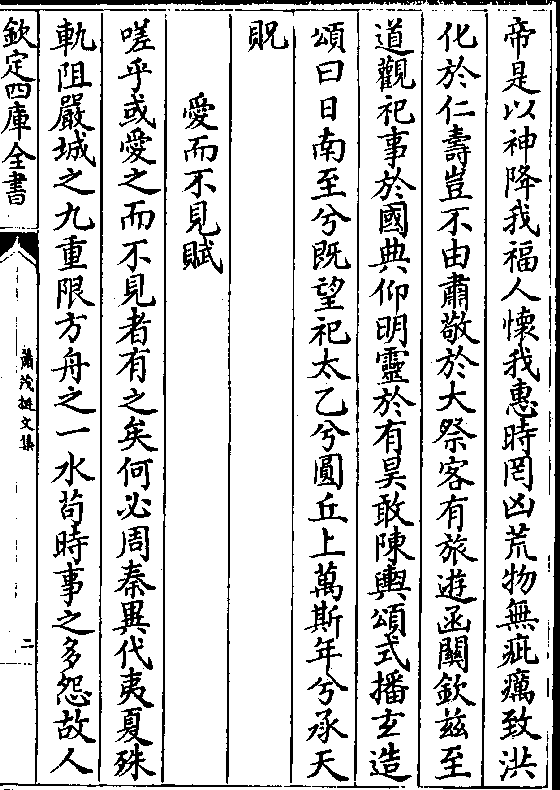 帝是以神降我福人懷我惠時罔凶荒物無疵癘致洪
化於仁壽豈不由肅敬於大祭客有旅遊函關欽兹至
道觀祀事於國典仰明靈於有昊敢陳輿頌式播玄造
頌曰日南至兮既望祀太乙兮圓丘上萬斯年兮承天
貺
愛而不見賦
嗟乎或愛之而不見者有之矣何必周秦異代夷夏殊
軌阻嚴城之九重限方舟之一水茍時事之多怨故人
欽定四庫全書
蕭茂挺文集
二